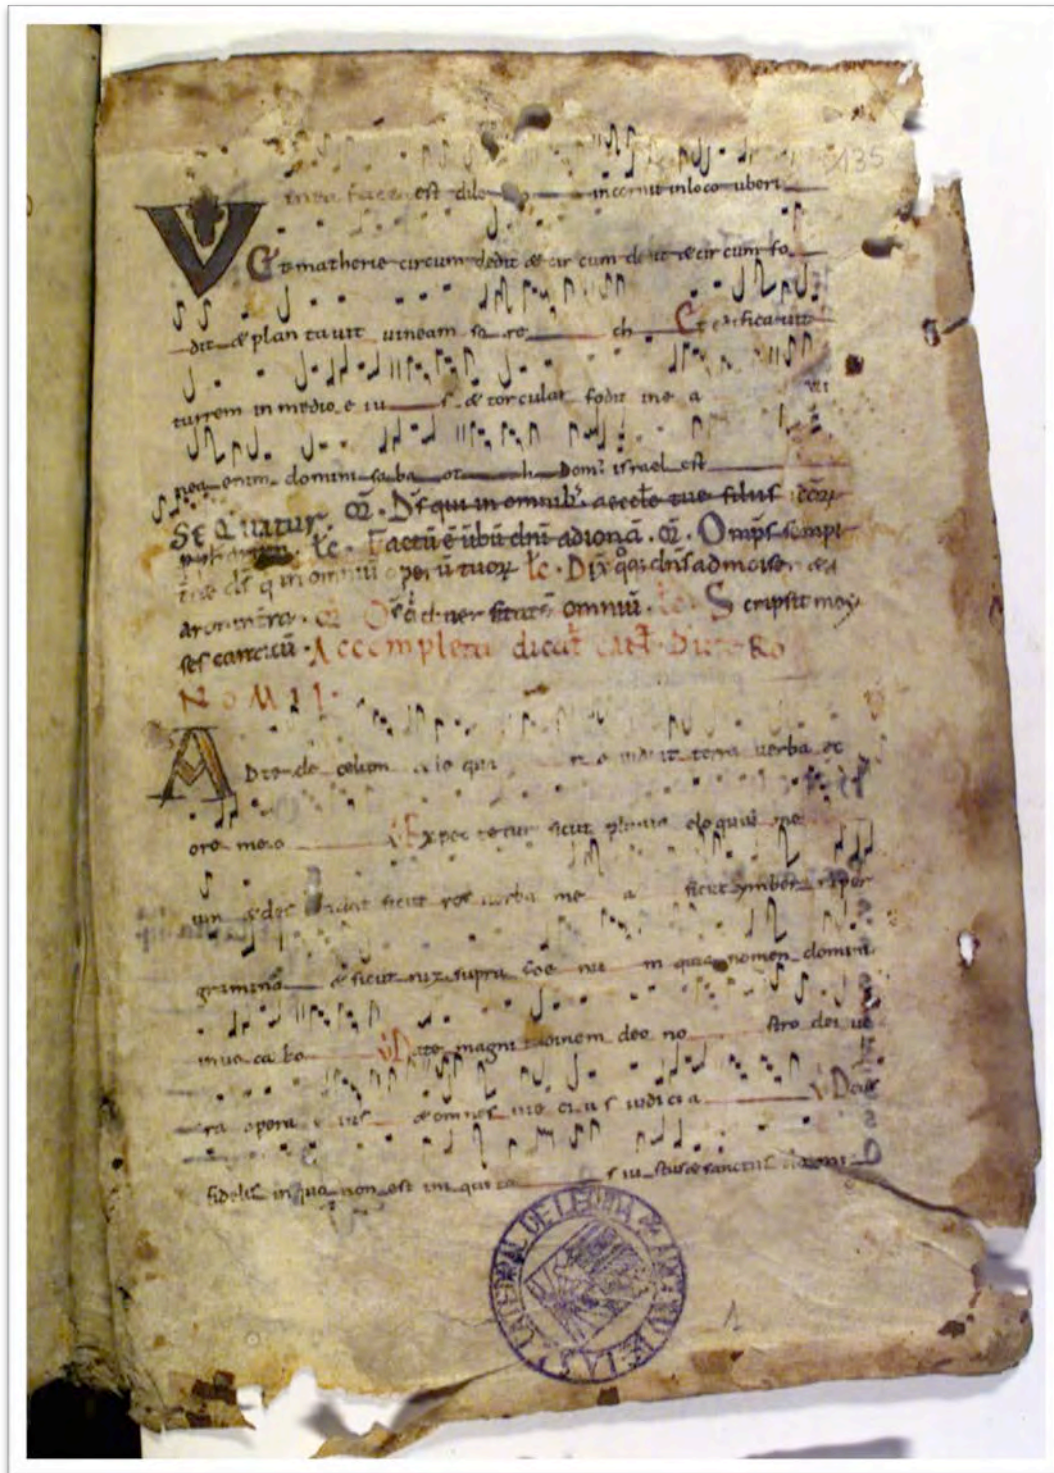 135
Vinea facta est dilecto in cornu in loco uberi
Et matherie circum dedit & circum dedit & circum fo
dit & plantauit uineam so re ch Et edificauit
turrem in medio e iu s & torcular fodit in e a Vi
nea enim domini saba ot h Dom; israel est
Sequitur. Or. Ds qui in omnib; aeccle tue filiis
Lc. Factu e ubu dni ad iona. Or. Omps sempi
tne ds q in omniu operu tuor Lc. Dix qoq; dns ad moisen & a
aron in tra. Or O diuersitate omniu. Lc. Scripsit moy
ses canticu. Accompleta dicat Deutero
NOMII.
A Dtende celum & lo quar & audiat terra uerba ex
ore meo V Expec tetur sicut pluuia eloquium me
um & des cendat sicut ros uerba me a sicut ymber super
gramina & sicut nix supra foe nu m quia nomen domini
inuo ca bo V Date magnitudinem deo no stro deus ue
ra opera e ius & omnes uie eius iudicia V Deus
fidelis in quo non est iniquita s iustus & sanctus dominus
CATEDRAL DE LERIDA
1